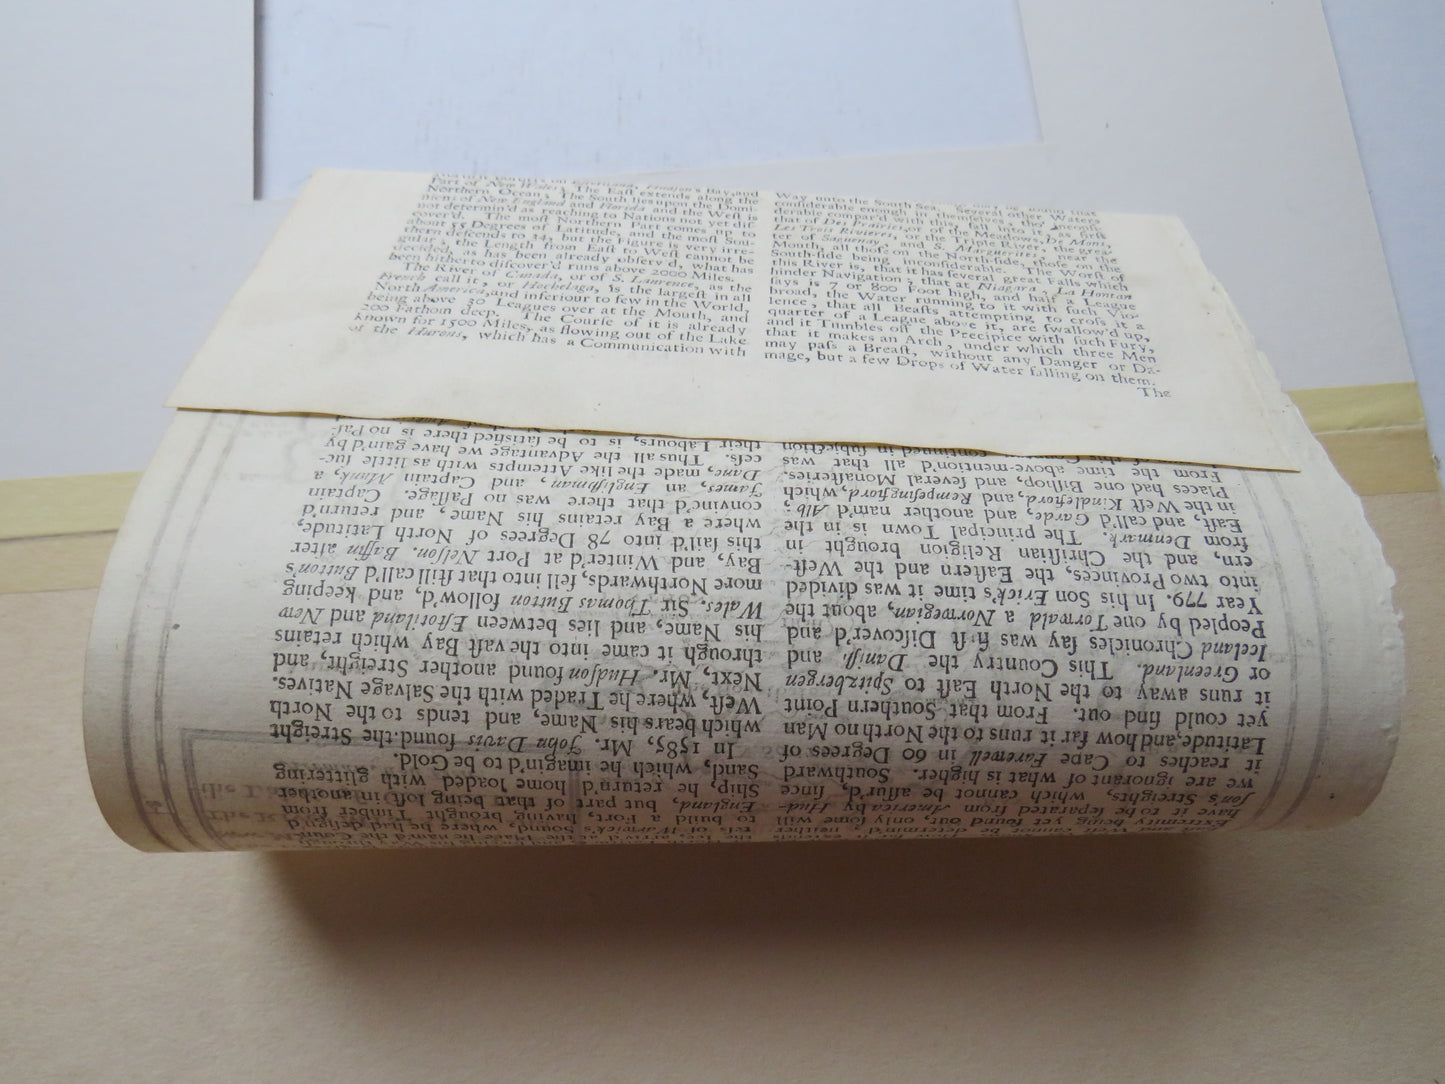 Part of New Wales; The East extends along the
Northern Ocean; The South lies upon the Domi-
nions of New England and Florida and the Weſt is
not determin'd as reaching to Nations not yet diſ-
cover'd. The moſt Northern Part comes up to
about 55 Degrees of Latitude, and the moſt Sou-
thern deſcends to 34, but the Figure is very irre-
gular, the Length from Eaſt to Weſt cannot be
decided, as has been already obſerv'd, what has
been hitherto diſcover'd runs above 2000 Miles.
The River of Canada, or of S. Laurence, as the
French call it, or Hochelaga, is the largeſt in all
North America, and inferiour to few in the World,
being above 30 Leagues over at the Mouth, and
200 Fathom deep. The Courſe of it is already
known for 1500 Miles, as flowing out of the Lake
of the Hurons, which has a Communication with
Way unto the South Sea. Several other Waters
conſiderable enough in themſelves, tho' inconſi-
derable compar'd with this, fall into it, as firſt
that of Des Prairies, or of the Meadows, De Mont,
Les Trois Rivieres, or the Triple River, the great
ter of Saguenay, and S. Marguerites, near the
Mouth, all thoſe on the North-ſide, thoſe on the
South-ſide being inconſiderable. The Worſt of
this River is, that it has ſeveral great Falls which
hinder Navigation; that at Niagara, La Hontan
ſays is 7 or 800 Foot high, and half a League
broad, the Water running to it with ſuch Vio-
lence, that all Beaſts attempting to croſs it a
quarter of a League above it, are ſwallow'd up,
and it Tumbles off the Precipice with ſuch Fury,
that it makes an Arch, under which three Men
may paſs a Breaſt, without any Danger or Da-
mage, but a few Drops of Water falling on them.
The
Extremity being yet found out, only ſome will
have it to be ſeparated from America by Hud-
ſon's Streights, which cannot be aſſur'd, ſince
we are ignorant of what is higher. Southward
it reaches to Cape Farewell in 60 Degrees of
Latitude, and how far it runs to the North no Man
yet could find out. From that Southern Point
it runs away to the North Eaſt to Spitzbergen
or Greenland. This Country the Daniſh, and
Iceland Chronicles ſay was firſt Diſcover'd and
Peopled by one Torwald a Norwegian, about the
Year 779. In his Son Erick's time it was divided
into two Provinces, the Eaſtern and the Weſt-
ern, and the Chriſtian Religion brought in
from Denmark. The principal Town is in the
Eaſt, and call'd Garde, and another nam'd Alb;
in the Weſt Kindlefiord, and Rempeſingfiord, which
Places had one Biſhop, and ſeveral Monaſteries.
From the time above-mention'd all that was
continued in ſubjection
to build a Fort, having brought Timber from
England, but part of that being loſt in another
Ship, he return'd home loaded with glittering
Sand, which he imagin'd to be Gold.
In 1585, Mr. John Davis found the Streight
which bears his Name, and tends to the North
Weſt, where he Traded with the Salvage Natives.
Next, Mr. Hudſon found another Streight, and
through it came into the vaſt Bay which retains
his Name, and lies between Eſtotiland and New
Wales. Sir Thomas Button follow'd, and keeping
more Northwards, fell into that ſtill call'd Button's
Bay, and Winter'd at Port Nelſon. Baffin after
this ſail'd into 78 Degrees of North Latitude,
where a Bay retains his Name, and return'd
convinc'd that there was no Paſſage. Captain
James, an Engliſhman, and Captain Munk, a
Dane, made the like Attempts with as little ſuc-
ceſs. Thus all the Advantage we have gain'd by
their Labours, is to be ſatisfied there is no Paſ-